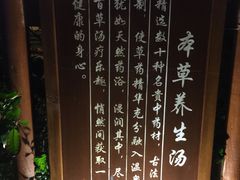 本草养生汤
精选数十种名贵中药材，古法
制，使草药精华充分融入温
犹如天然药浴，浸润其中，尽
百草汤疗乐趣，悄然间获取一
健康的身心。